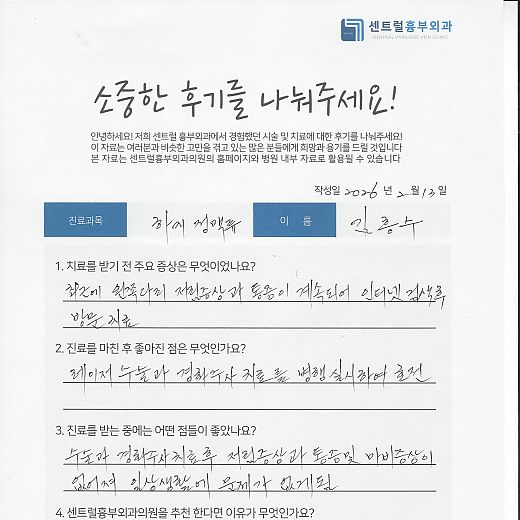 센트럴흉부외과
CENTRAL VARICOSE VEIN CLINIC
소중한 후기를 나눠주세요!
안녕하세요! 저희 센트럴 흉부외과에서 경험했던 시술 및 치료에 대한 후기를 나눠주세요!
이 자료는 여러분과 비슷한 고민을 겪고 있는 많은 분들에게 희망과 용기를 드릴 것입니다
본 자료는 센트럴흉부외과의원의 홈페이지와 병원 내부 자료로 활용될 수 있습니다
작성일 2026 년 2 월 13 일
진료과목 하지 정맥류 이 름 김흥수
1. 치료를 받기 전 주요 증상은 무엇이었나요?
최근에 왼쪽다리 저림증상과 통증이 계속되어 인터넷 검색후
방문 치료
2. 진료를 마친 후 좋아진 점은 무엇인가요?
레이저 수술과 경화주사 치료를 병행 실시하여 호전
3. 진료를 받는 중에는 어떤 점들이 좋았나요?
수술과 경화주사치료후 저림증상과 통증및 마비증상이
없어져 일상생활에 문제가 없게됨
4. 센트럴흉부외과의원을 추천 한다면 이유가 무엇인가요?